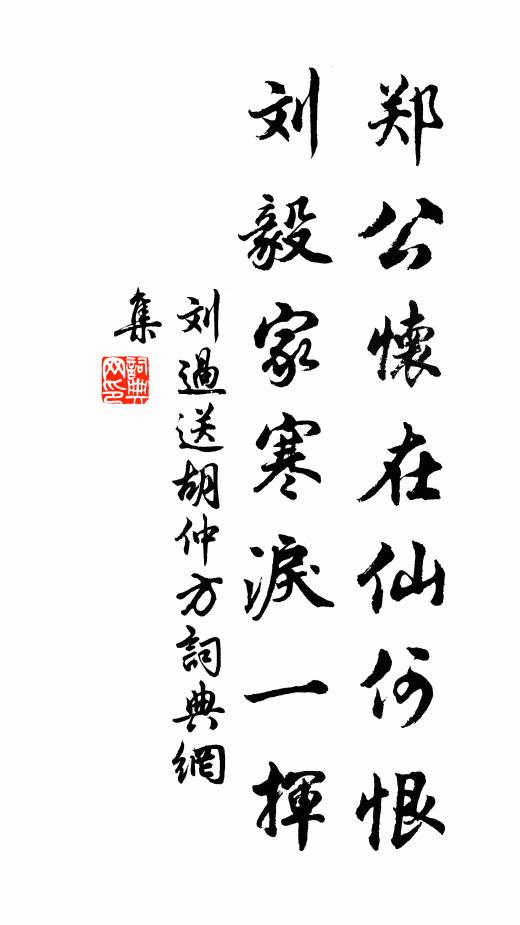 郑公懷在仙何恨
刘毅家寒淚一揮
刘過送胡仲方詞典網
集
詞典网印